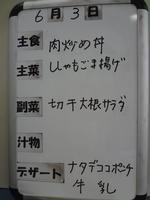 6月3日
主食 肉炒め丼
主菜 ししゃもごま揚げ
副菜 切干大根サラダ
汁物
デザート ナタデココポンチ
牛乳